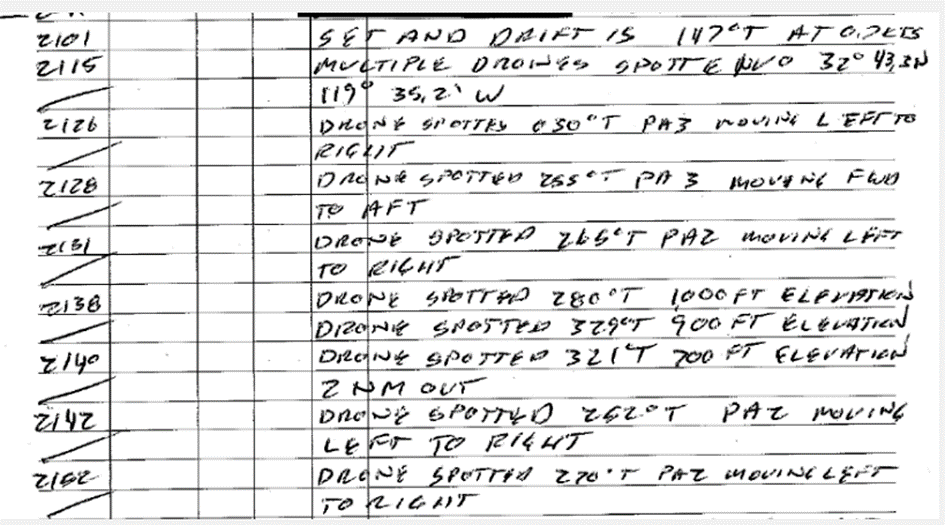 2101 SET AND DRIFT IS 147°T AT 0.7KTS
2115 MULTIPLE DRONES SPOTTE IVO 32° 43.3N
119° 35.2' W
2126 DRONE SPOTTED 030°T PA3 MOVING LEFT TO
RIGHT
2128 DRONE SPOTTED 255°T PA 3 MOVING FWD
TO AFT
2131 DRONE SPOTTED 265°T PA2 MOVING LEFT
TO RIGHT
2138 DRONE SPOTTED 280°T 1000 FT ELEVATION
DRONE SPOTTED 329°T 900 FT ELEVATION
2140 DRONE SPOTTED 321°T 700 FT ELEVATION
2 NM OUT
2142 DRONE SPOTTED 252°T PA2 MOVING
LEFT TO RIGHT
2152 DRONE SPOTTED 270°T PA2 MOVING LEFT
TO RIGHT